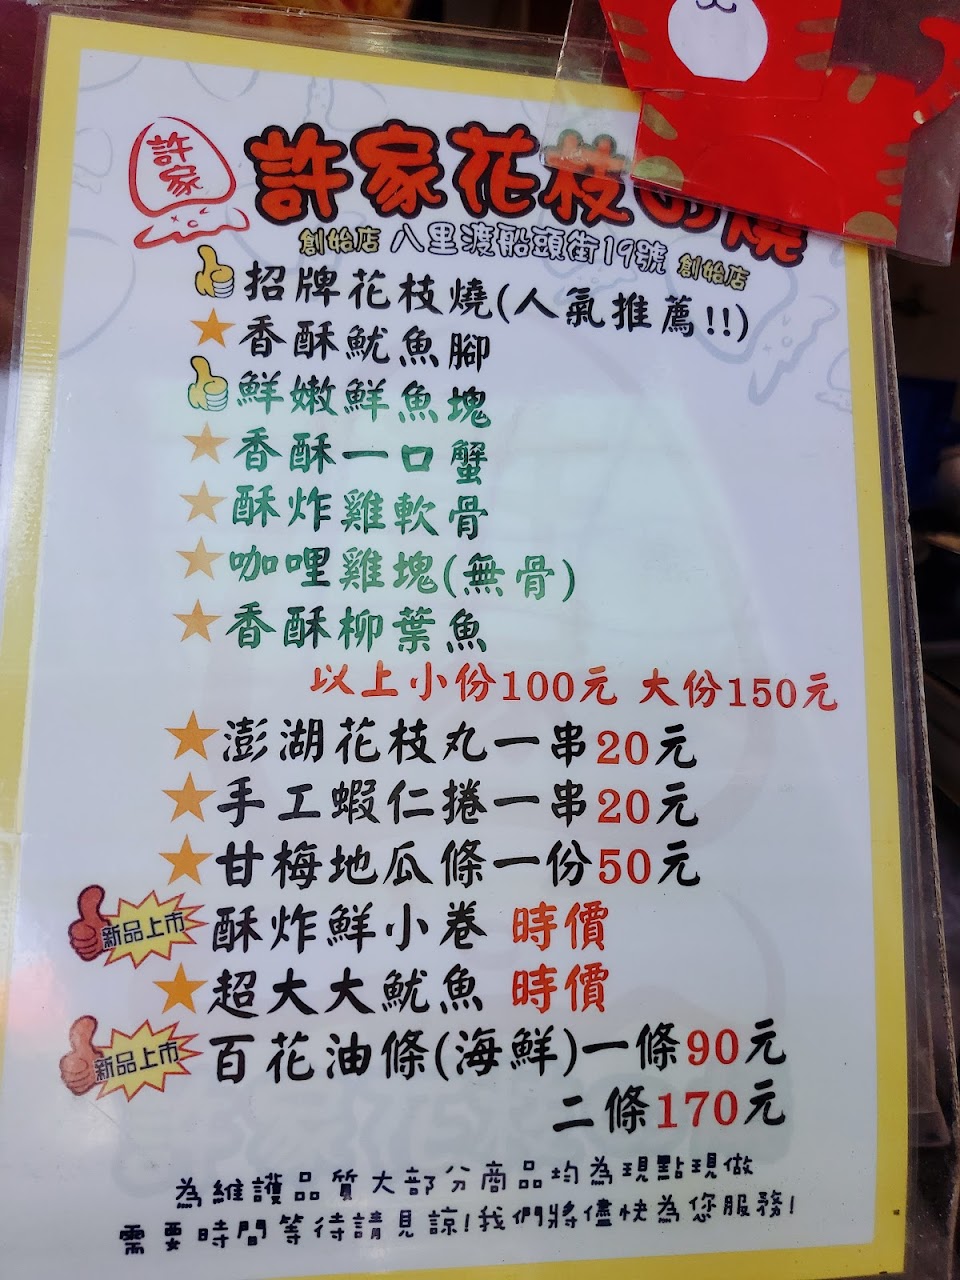 許家
許家花枝の燒
創始店 八里渡船頭街19號 創始店
招牌花枝燒(人氣推薦!!)
香酥魷魚腳
鮮嫩鮮魚塊
香酥一口蟹
酥炸雞軟骨
咖哩雞塊(無骨)
香酥柳葉魚
以上小份100元 大份150元
澎湖花枝丸一串20元
手工蝦仁捲一串20元
甘梅地瓜條一份50元
新品上市 酥炸鮮小卷 時價
超大大魷魚 時價
新品上市 百花油條(海鮮)一條90元
二條170元
為維護品質大部分商品均為現點現做
需要時間等待請見諒!我們將儘快為您服務!